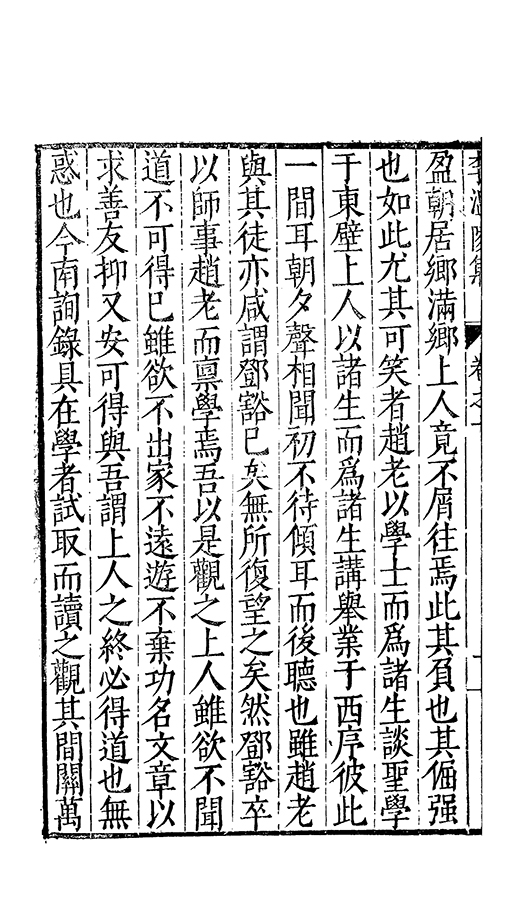 盈朝居鄉滿鄉上人竟不屑往焉此其負也其倔强
也如此尤其可笑者趙老以學士而爲諸生談聖學
于東壁上人以諸生而爲諸生講舉業于西序彼此
一間耳朝夕聲相聞初不待傾耳而後聽也雖趙老
與其徒亦咸謂鄧豁已矣無所復望之矣然鄧豁卒
以師事趙老而禀學焉吾以是觀之上人雖欲不聞
道不可得已雖欲不出家不遠遊不棄功名文章以
求善友抑又安可得與吾謂上人之終必得道也無
惑也今南詢錄具在學者試取而讀之觀其間關萬